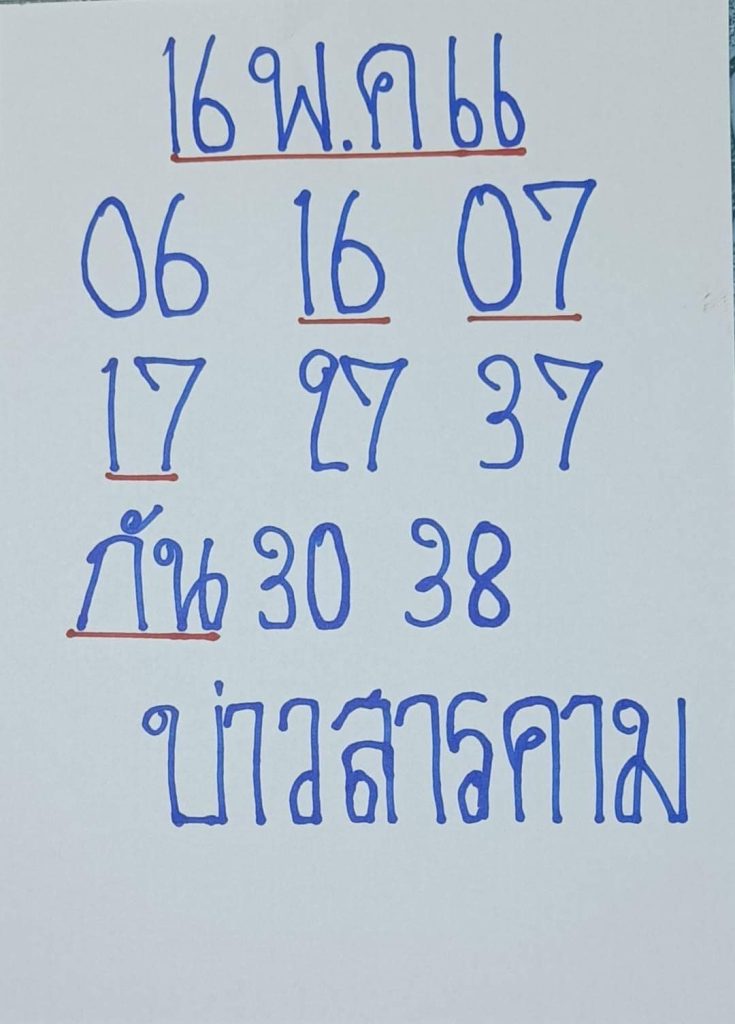 16 พ.ค 66
06 16 07
17 27 37
กัน 30 38
บ่าวสารคาม